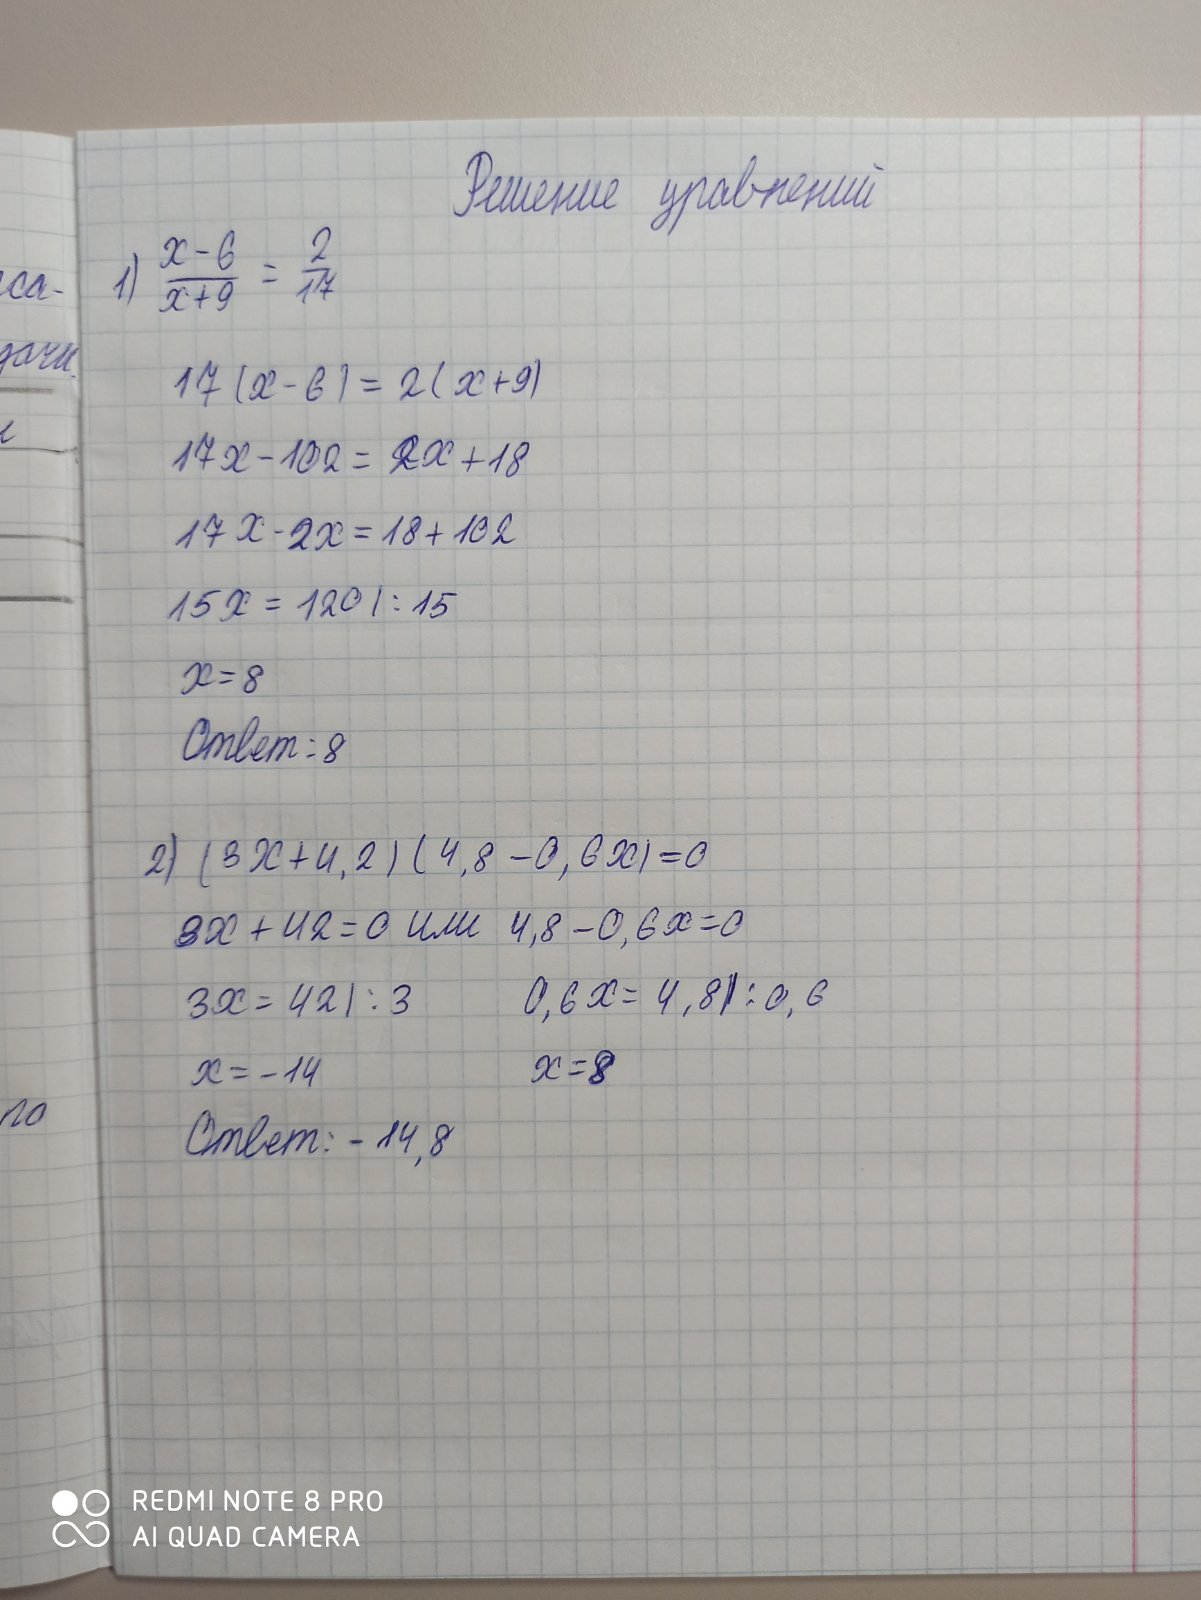 Решение уравнений
1) x-6/x+9 = 2/17
17(x-6)=2(x+9)
17x-102=2x+18
17x-2x=18+102
15x=120|:15
x=8
Ответ:8
2) (3x+4,2)(4,8-0,6x)=0
3x+42=0 или 4,8-0,6x=0
3x=42|:3 0,6x=4,8|:0,6
x=-14 x=8
Ответ:-14,8
са-
дачи
по
REDMI NOTE 8 PRO
AI QUAD CAMERA